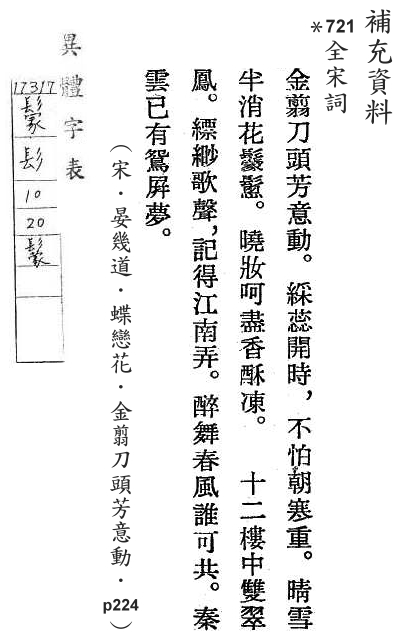 補充資料
*721
全宋詞
金翦刀頭芳意動。 綵蕊開時,不怕朝寒重。晴雪
半消花鬖鬆。 曉妝呵盡香酥凍。 十二樓中雙翠
鳳。 縹緲歌聲,記得江南弄。醉舞春風誰可共。 秦
雲已有鴛屏夢。
(宋.晏幾道.蝶戀花.金翦刀頭芳意動.p224)
異體字表
17317
髟
10
20